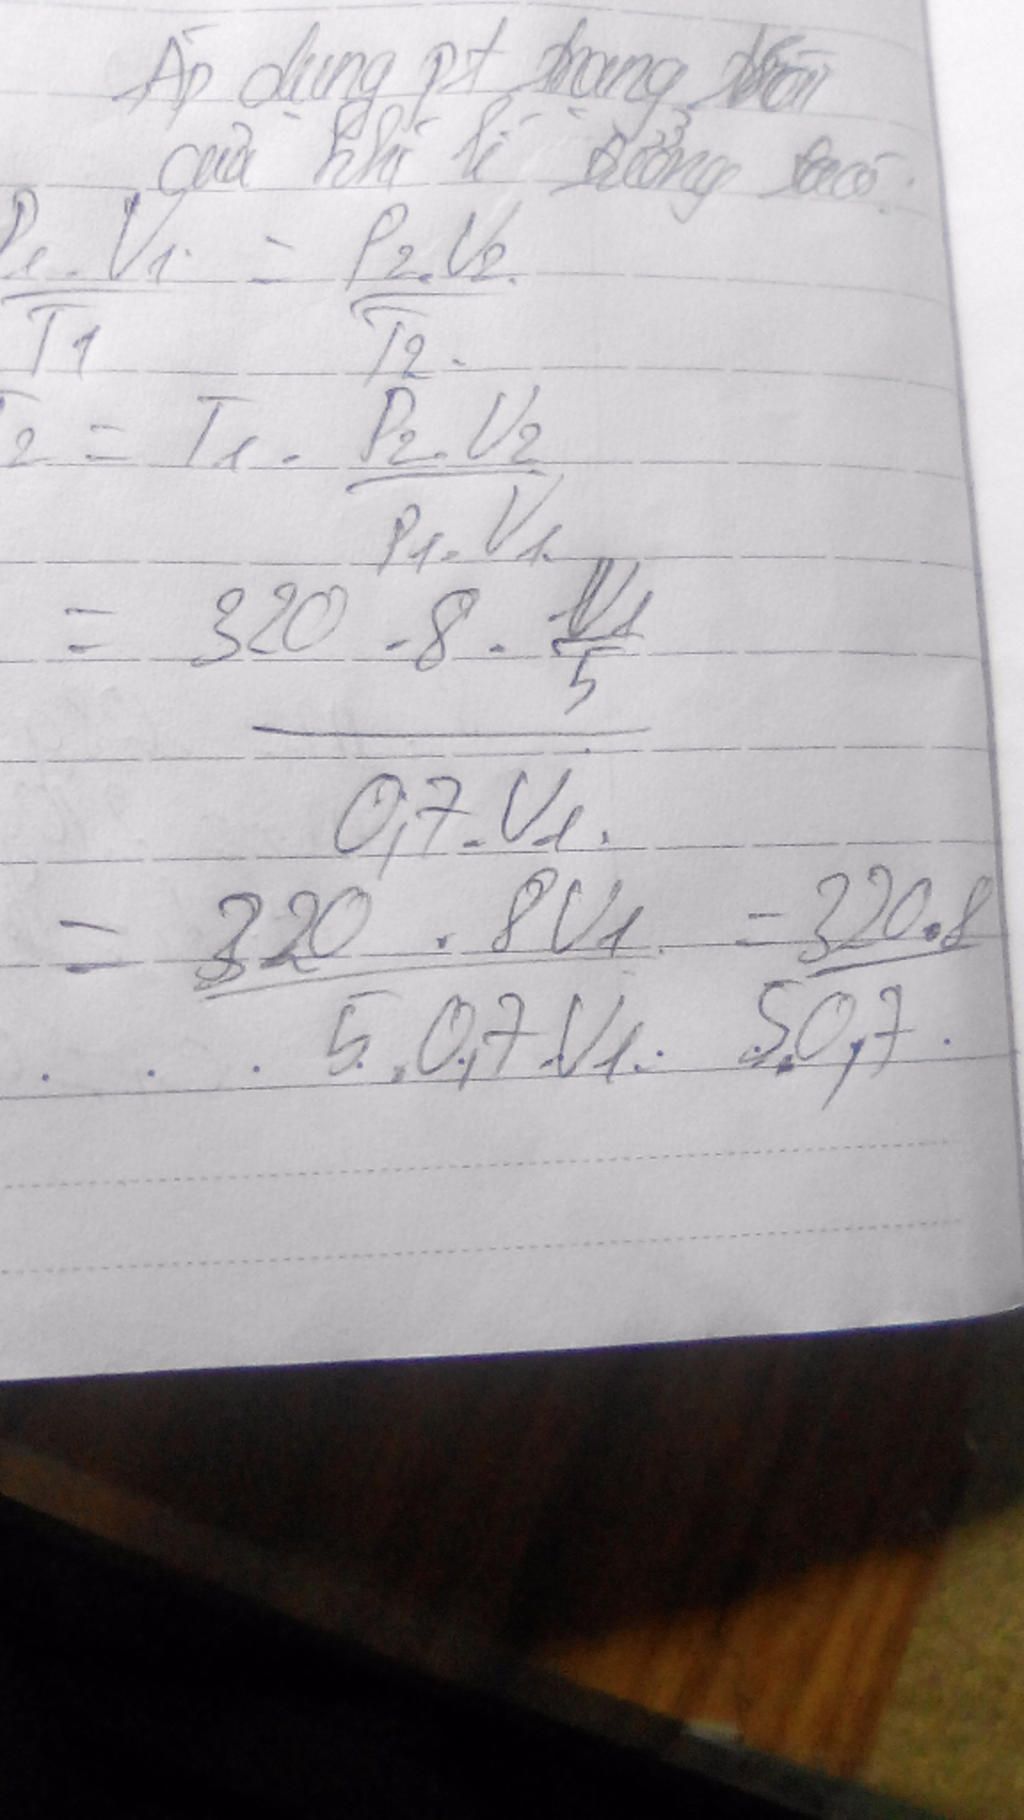 Áp dụng pt trạng thái
của khí lí tưởng ta có.
P1.V1. = P2.V2.
T1 T2.
T2 = T1. P2.V2
P1.V1.
= 320 .8. V1
5
0,7.V1.
= 320 . 8V1. = 320.8
5.0,7.V1. 5.0,7.